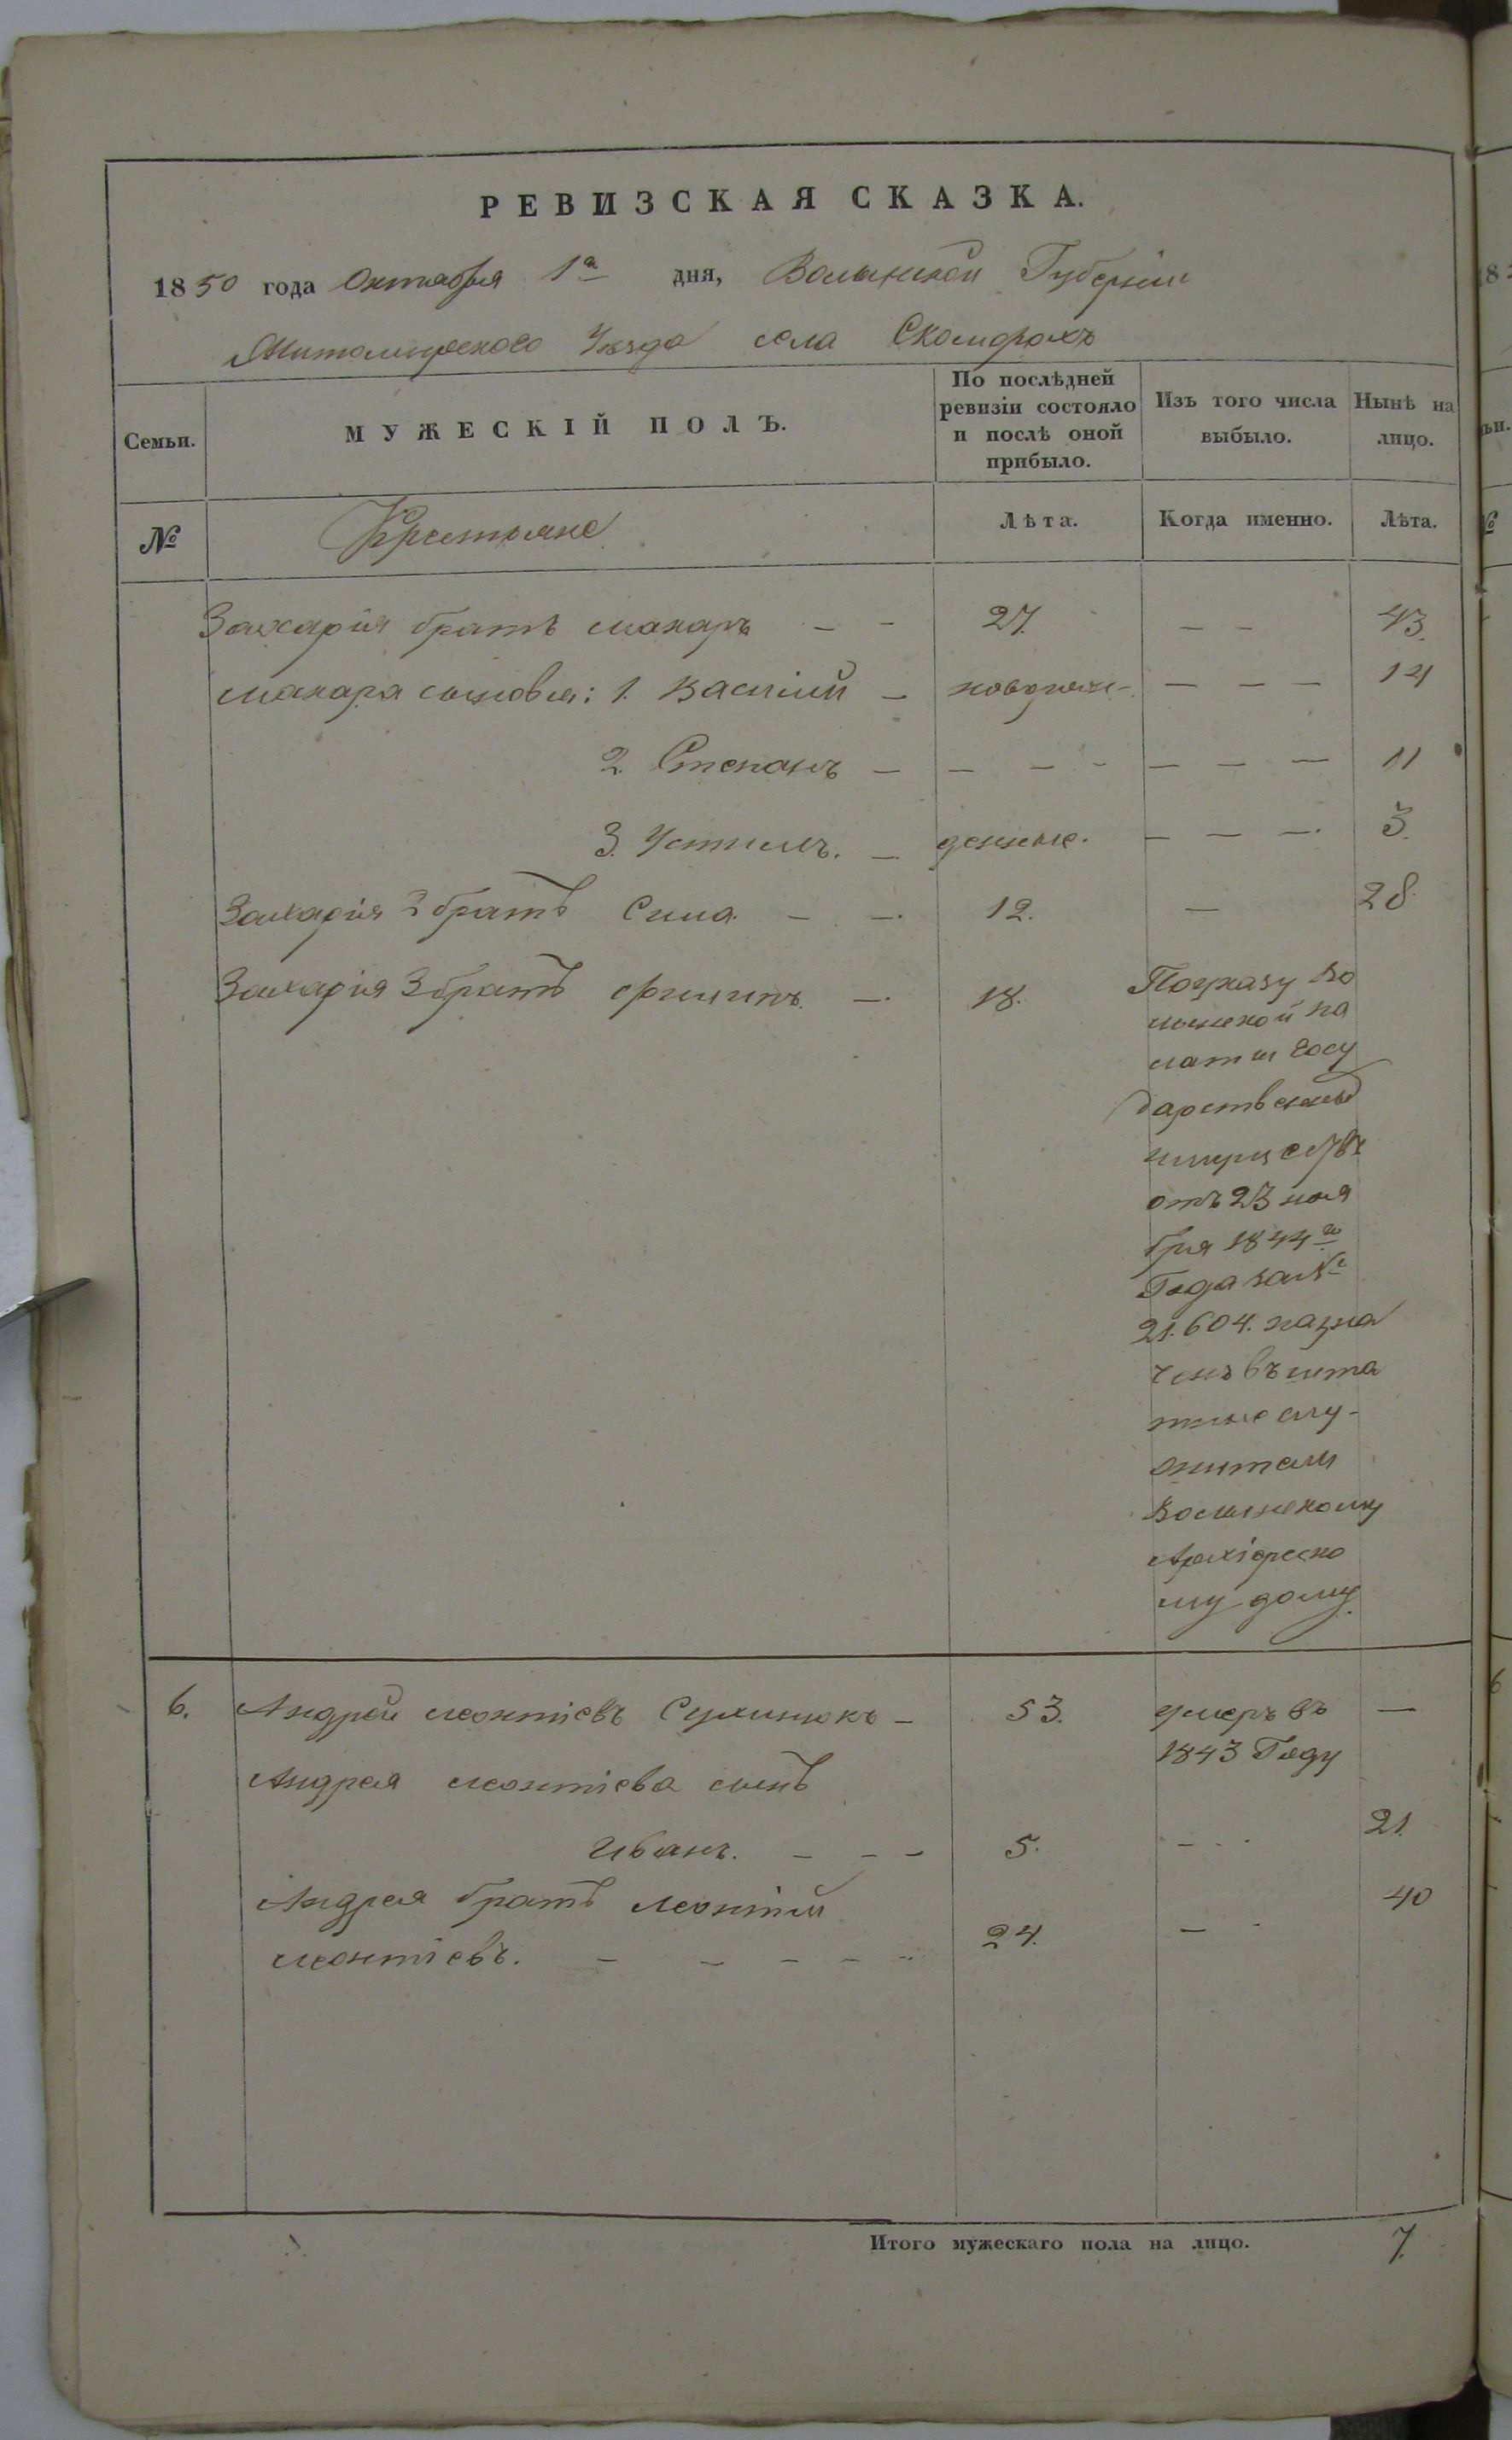 РЕВИЗСКАЯ СКАЗКА.
1850 года Октября 1го дня, Волынской Губерніи
Житомирского Уѣзда села Скоморохъ
Семьи. МУЖЕСКІЙ ПОЛЪ. По послѣдней ревизіи состояло и послѣ оной прибыло. Изъ того числа выбыло. Нынѣ на лицо.
№ Крестьяне Лѣта. Когда именно. Лѣта.
Захарія братъ Макаръ – – 27. – – 43.
Макара сыновья: 1. Василій – новорож- – – – 14
2. Степанъ – – – – – – – 11
3. Устимъ. – денные. – – –. 3.
Захарія 2 братъ Сила – –. 12. – 28.
Захарія 3 братъ Филипъ. –. 18. По указу Во
лынской па
латы Госу
дарственных
имуществъ
отъ 23 ноя
бря 1844го
Года за №
21.604. назна
ченъ въ шта
тные слу-
жители
Волынскому
Архіереско
му дому.
6. Андрей Леонтіевъ Сухинюкъ – 53. умеръ въ –
1843 Году
Андрея Леонтіева сынъ
Иванъ. – – – 5. – . . 21.
Андрея братъ Леонтій 40
Леонтіевъ. – – – – – 24. – -
Итого мужескаго пола на лицо. 7.